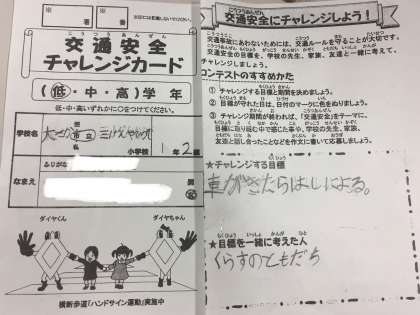 ※
※
署
番
こうつうあんぜん
交通安全
チャレンジカード
(低・中・高)学年
低・中・高いずれかに○をつけてください。
学校名
市立
小学校
1年2組
ふりがな
なまえ
ダイヤくん
ダイヤちゃん
横断歩道「ハンドサイン運動」実施中
こうつうあんぜん
交通安全にチャレンジしよう!
交通事故にあわないためには、交通ルールを守ることが大切です。
交通安全の目標を、学校の先生、家族、友達と一緒に考えて、
チャレンジしましょう。
コンテストのすすめかた
① チャレンジする目標と期間を決めましょう。
② 目標が守れた日は、日付のマークに色をぬりましょう。
③ チャレンジ期間が終われば、「交通安全」をテーマに、
目標に取り組む中で感じた事や、学校の先生、家族、
友達と話し合ったことなどを作文に書いて応募しましょう。
★チャレンジする目標
車がきたらはしによる。
★目標を一緒に考えた人
くらすのともだち